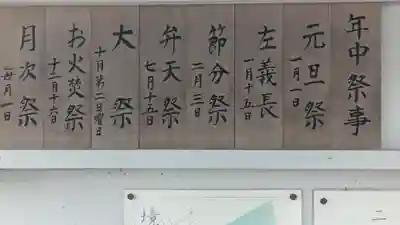 年中祭事
元旦祭
一月一日
左義長
一月十五日
節分祭
二月三日
弁天祭
七月十五日
大祭
十月第二日曜日
お火焚祭
十一月十六日
月次祭
毎月一日
境
二